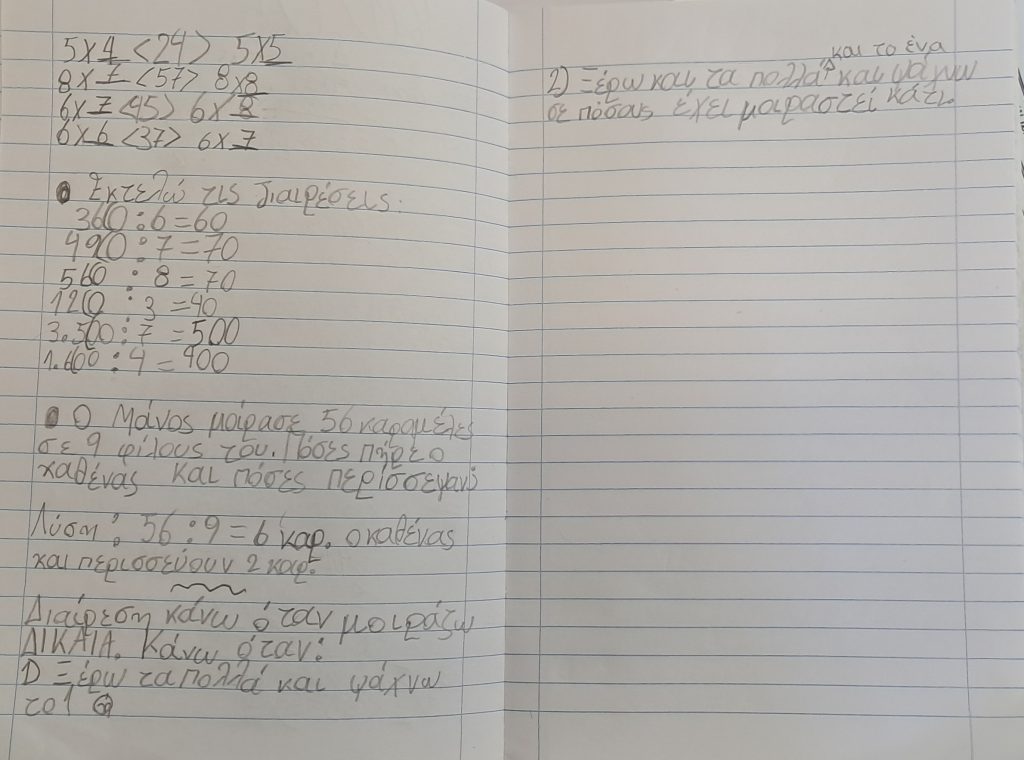 5x4 <24> 5x5
8x7 <57> 8x8
6x7 <45> 6x8
6x6 <37> 6x7
• Εκτελώ τις διαιρέσεις.
360:6=60
490:7=70
560 : 8=70
120 : 3 =40
3.500:7 =500
1.600:4 =400
• Ο Μάνος μοίρασε 56 καραμέλες
σε 9 φίλους του. Πόσες πήρε ο
καθένας και πόσες περίσσεψαν;
Λύση: 56:9=6 καρ. ο καθένας
και περισσεύουν 2 καρ.
Διαίρεση κάνω όταν μοιράζω
ΔΙΚΑΙΑ. Κάνω όταν:
1) Ξέρω τα πολλά και ψάχνω
το 1
και το ένα
2) Ξέρω και τα πολλά και ψάχνω
σε πόσους έχει μοιραστεί κάτι.